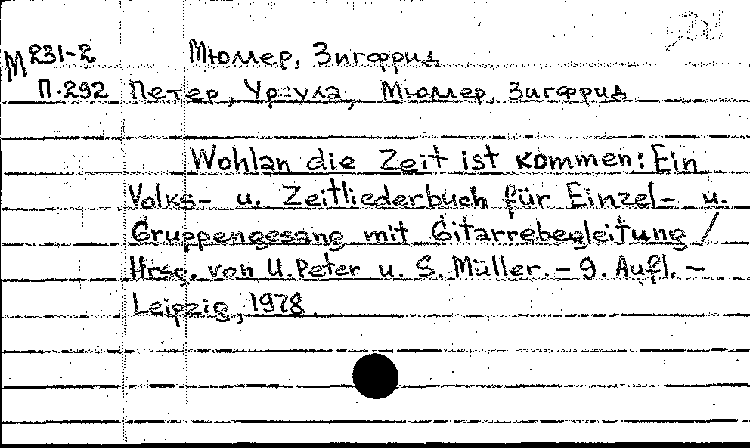 М 231-2 Мюллер, Зигфрид
П.292 Петер, Урзула, Мюллер, Зигфрид
Wohlan die Zeit ist kommen: Ein
Volks- u. Zeitliederbuch für Einzel- u.
Gruppengesang mit Gitarrebegleitung /
Hrsg. von U. Peter u. S. Müller. - 9. Aufl. -
Leipzig, 1978.